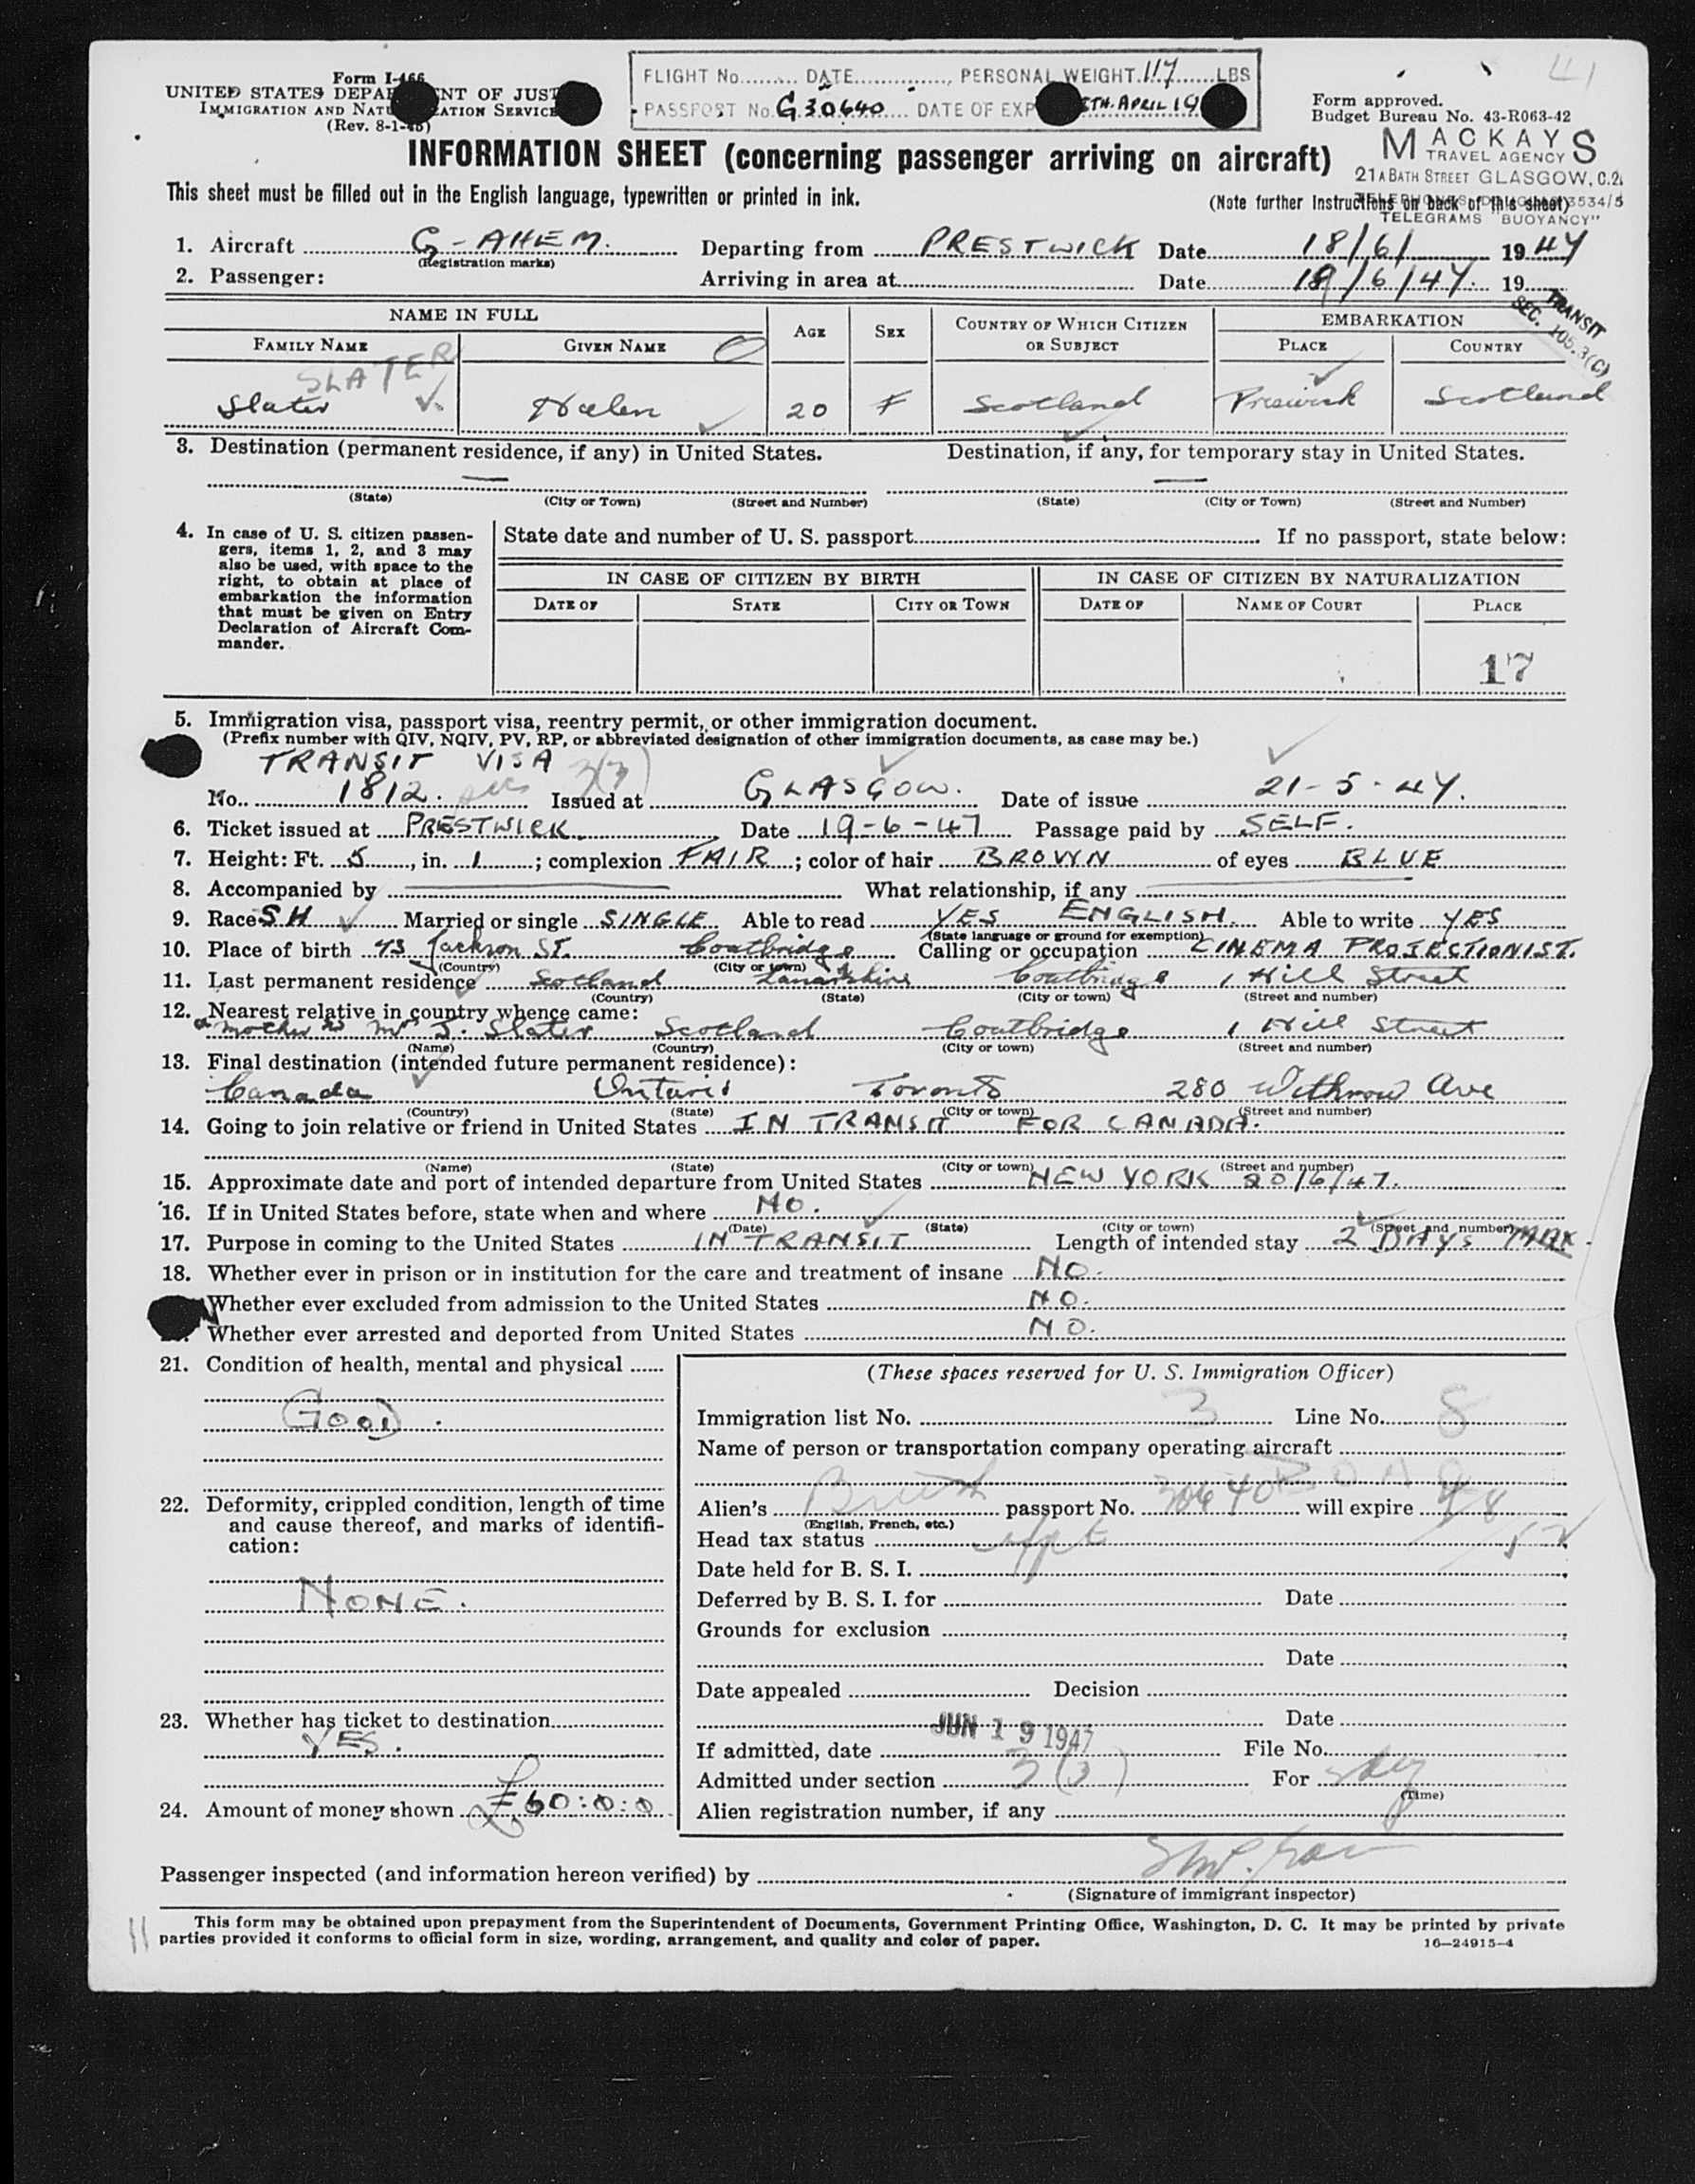 41
Form I-466
FLIGHT No.......... DATE.............., PERSONAL WEIGHT. 117 ......LBS
UNITED STATES DEPA NT OF JUST
IMMIGRATION AND NATU ATION SERVICE
PASSPORT No. G 30640 .... DATE OF EXP TH. APRIL 19
(Rev. 8-1-45)
Form approved.
Budget Bureau No. 43-R063-42
MACKAYS
TRAVEL AGENCY
21A BATH STREET GLASGOW, C.2.
TELEGRAMS "BUOYANCY"
INFORMATION SHEET (concerning passenger arriving on aircraft)
This sheet must be filled out in the English language, typewritten or printed in ink.
(Note further Instructions on back of this sheet) 3534/5
1. Aircraft G-AHEM. Departing from PRESTWICK Date 18/6/ 1947
(Registration marks)
2. Passenger: Arriving in area at Date 19/6/47. 19
TRANSIT
SEC. 105.3(C)
NAME IN FULL AGE SEX COUNTRY OF WHICH CITIZEN OR SUBJECT EMBARKATION
FAMILY NAME GIVEN NAME PLACE COUNTRY
SLATER
Slater Helen 20 F Scotland Preswick Scotland
3. Destination (permanent residence, if any) in United States. Destination, if any, for temporary stay in United States.
(State) (City or Town) (Street and Number) (State) (City or Town) (Street and Number)
4. In case of U. S. citizen passen-
gers, items 1, 2, and 3 may
also be used, with space to the
right, to obtain at place of
embarkation the information
that must be given on Entry
Declaration of Aircraft Com-
mander.
State date and number of U. S. passport If no passport, state below:
IN CASE OF CITIZEN BY BIRTH IN CASE OF CITIZEN BY NATURALIZATION
DATE OF STATE CITY OR TOWN DATE OF NAME OF COURT PLACE
17
5. Immigration visa, passport visa, reentry permit, or other immigration document.
(Prefix number with QIV, NQIV, PV, RP, or abbreviated designation of other immigration documents, as case may be.)
TRANSIT VISA 3(3)
No. 1812. Issued at GLASGOW. Date of issue 21-5-47.
6. Ticket issued at PRESTWICK. Date 19-6-47 Passage paid by SELF.
7. Height: Ft. 5, in. 1; complexion FAIR; color of hair BROWN of eyes BLUE
8. Accompanied by What relationship, if any
9. Race SH Married or single SINGLE Able to read YES ENGLISH. Able to write YES
(State language or ground for exemption)
10. Place of birth 43 Jackson ST. Coatbridge Calling or occupation CINEMA PROJECTIONIST.
(Country) (City or town)
11. Last permanent residence Scotland Lanarkshire Coatbridge 1 Hill Street
(Country) (State) (City or town) (Street and number)
12. Nearest relative in country whence came:
mother J. Slater Scotland Coatbridge 1 Hill Street
(Name) (Country) (City or town) (Street and number)
13. Final destination (intended future permanent residence):
Canada Ontario Toronto 280 Withrow Ave
(Country) (State) (City or town) (Street and number)
14. Going to join relative or friend in United States IN TRANSIT FOR CANADA.
(Name) (State) (City or town) (Street and number)
15. Approximate date and port of intended departure from United States NEW YORK 20/6/47.
16. If in United States before, state when and where NO.
(Date) (State) (City or town) (Street and number)
17. Purpose in coming to the United States IN TRANSIT Length of intended stay 2 DAYS MAX.
18. Whether ever in prison or in institution for the care and treatment of insane NO.
Whether ever excluded from admission to the United States NO.
Whether ever arrested and deported from United States NO.
21. Condition of health, mental and physical
GOOD.
22. Deformity, crippled condition, length of time
and cause thereof, and marks of identifi-
cation:
NONE.
23. Whether has ticket to destination
YES.
24. Amount of money shown £60:0:0
(These spaces reserved for U. S. Immigration Officer)
Immigration list No. 3 Line No. 8
Name of person or transportation company operating aircraft
BOAC
Alien's British passport No. 30640 will expire 4/8/52
(English, French, etc.)
Head tax status
Date held for B. S. I.
Deferred by B. S. I. for Date
Grounds for exclusion
Date
Date appealed Decision
Date
JUN 19 1947
If admitted, date File No.
Admitted under section 3(3) For
(Time)
Alien registration number, if any
Passenger inspected (and information hereon verified) by
(Signature of immigrant inspector)
This form may be obtained upon prepayment from the Superintendent of Documents, Government Printing Office, Washington, D. C. It may be printed by private
parties provided it conforms to official form in size, wording, arrangement, and quality and color of paper.
16—24915-4
11